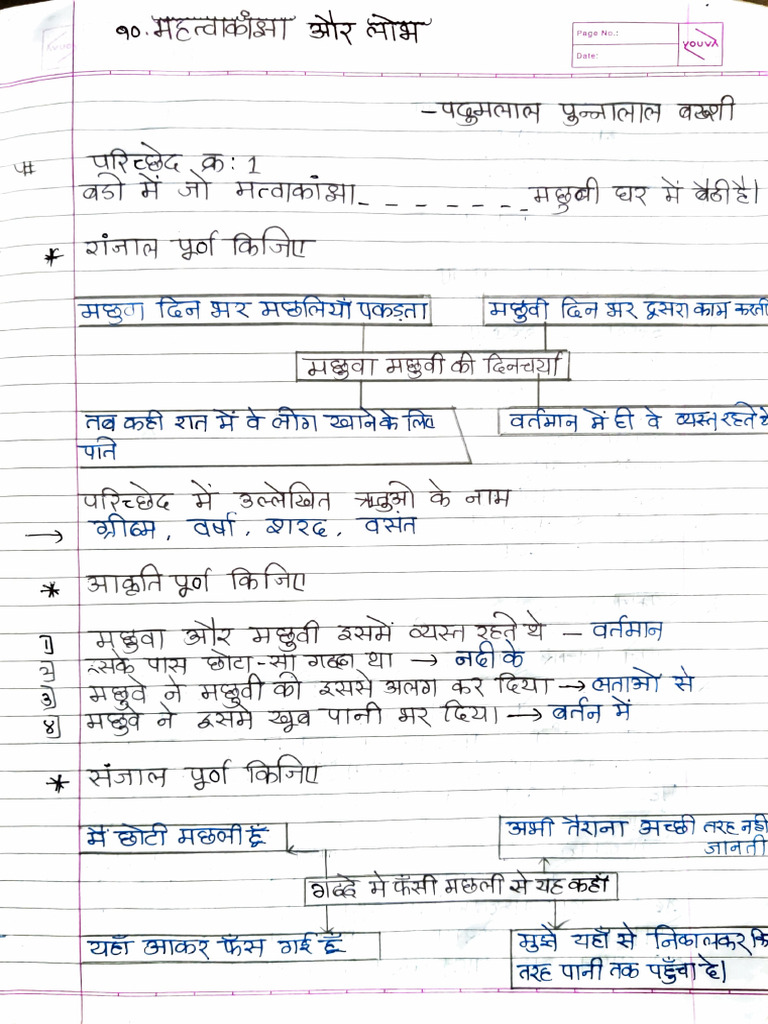 १०. महत्वाकांक्षा और लोभ
Page No.:
Date:
YOUVA
-पदुमलाल पुन्नालाल बख्शी
# परिच्छेद क्र: 1
बडो में जो मत्वाकांक्षा_ _ _ _ _ _ _ मछुवी घर में बैठी है।
* संजाल पूर्ण किजिए
मछुवा दिन भर मछलियाँ पकड़ता
मछुवी दिन भर दुसरा काम करती
मछुवा मछुवी की दिनचर्या
तब कही रात में वे लोग खाने के लिए
पाते
वर्तमान में ही वे व्यस्त रहते थे
परिच्छेद में उल्लेखित ऋतुओ के नाम
→ ग्रीष्म, वर्षा, शरद, वसंत
* आकृति पूर्ण किजिए
1] मछुवा और मछुवी इसमें व्यस्त रहते थे - वर्तमान
2] इसके पास छोटा-सा गढ्ढा था → नदी के
3] मछुवे ने मछुवी को इससे अलग कर दिया → लताओ से
४] मछुवे ने इसमे खूब पानी भर दिया। → बर्तन में
* संजाल पूर्ण किजिए
मैं छोटी मछली हूँ
अभी तैराना अच्छी तरह नही
जानती
गढ्ढे मे फँसी मछली ने यह कहाँ
यहाँ आकर फँस गई हूँ
मुझे यहाँ से निकालकर कि
तरह पानी तक पहुँचा दे।